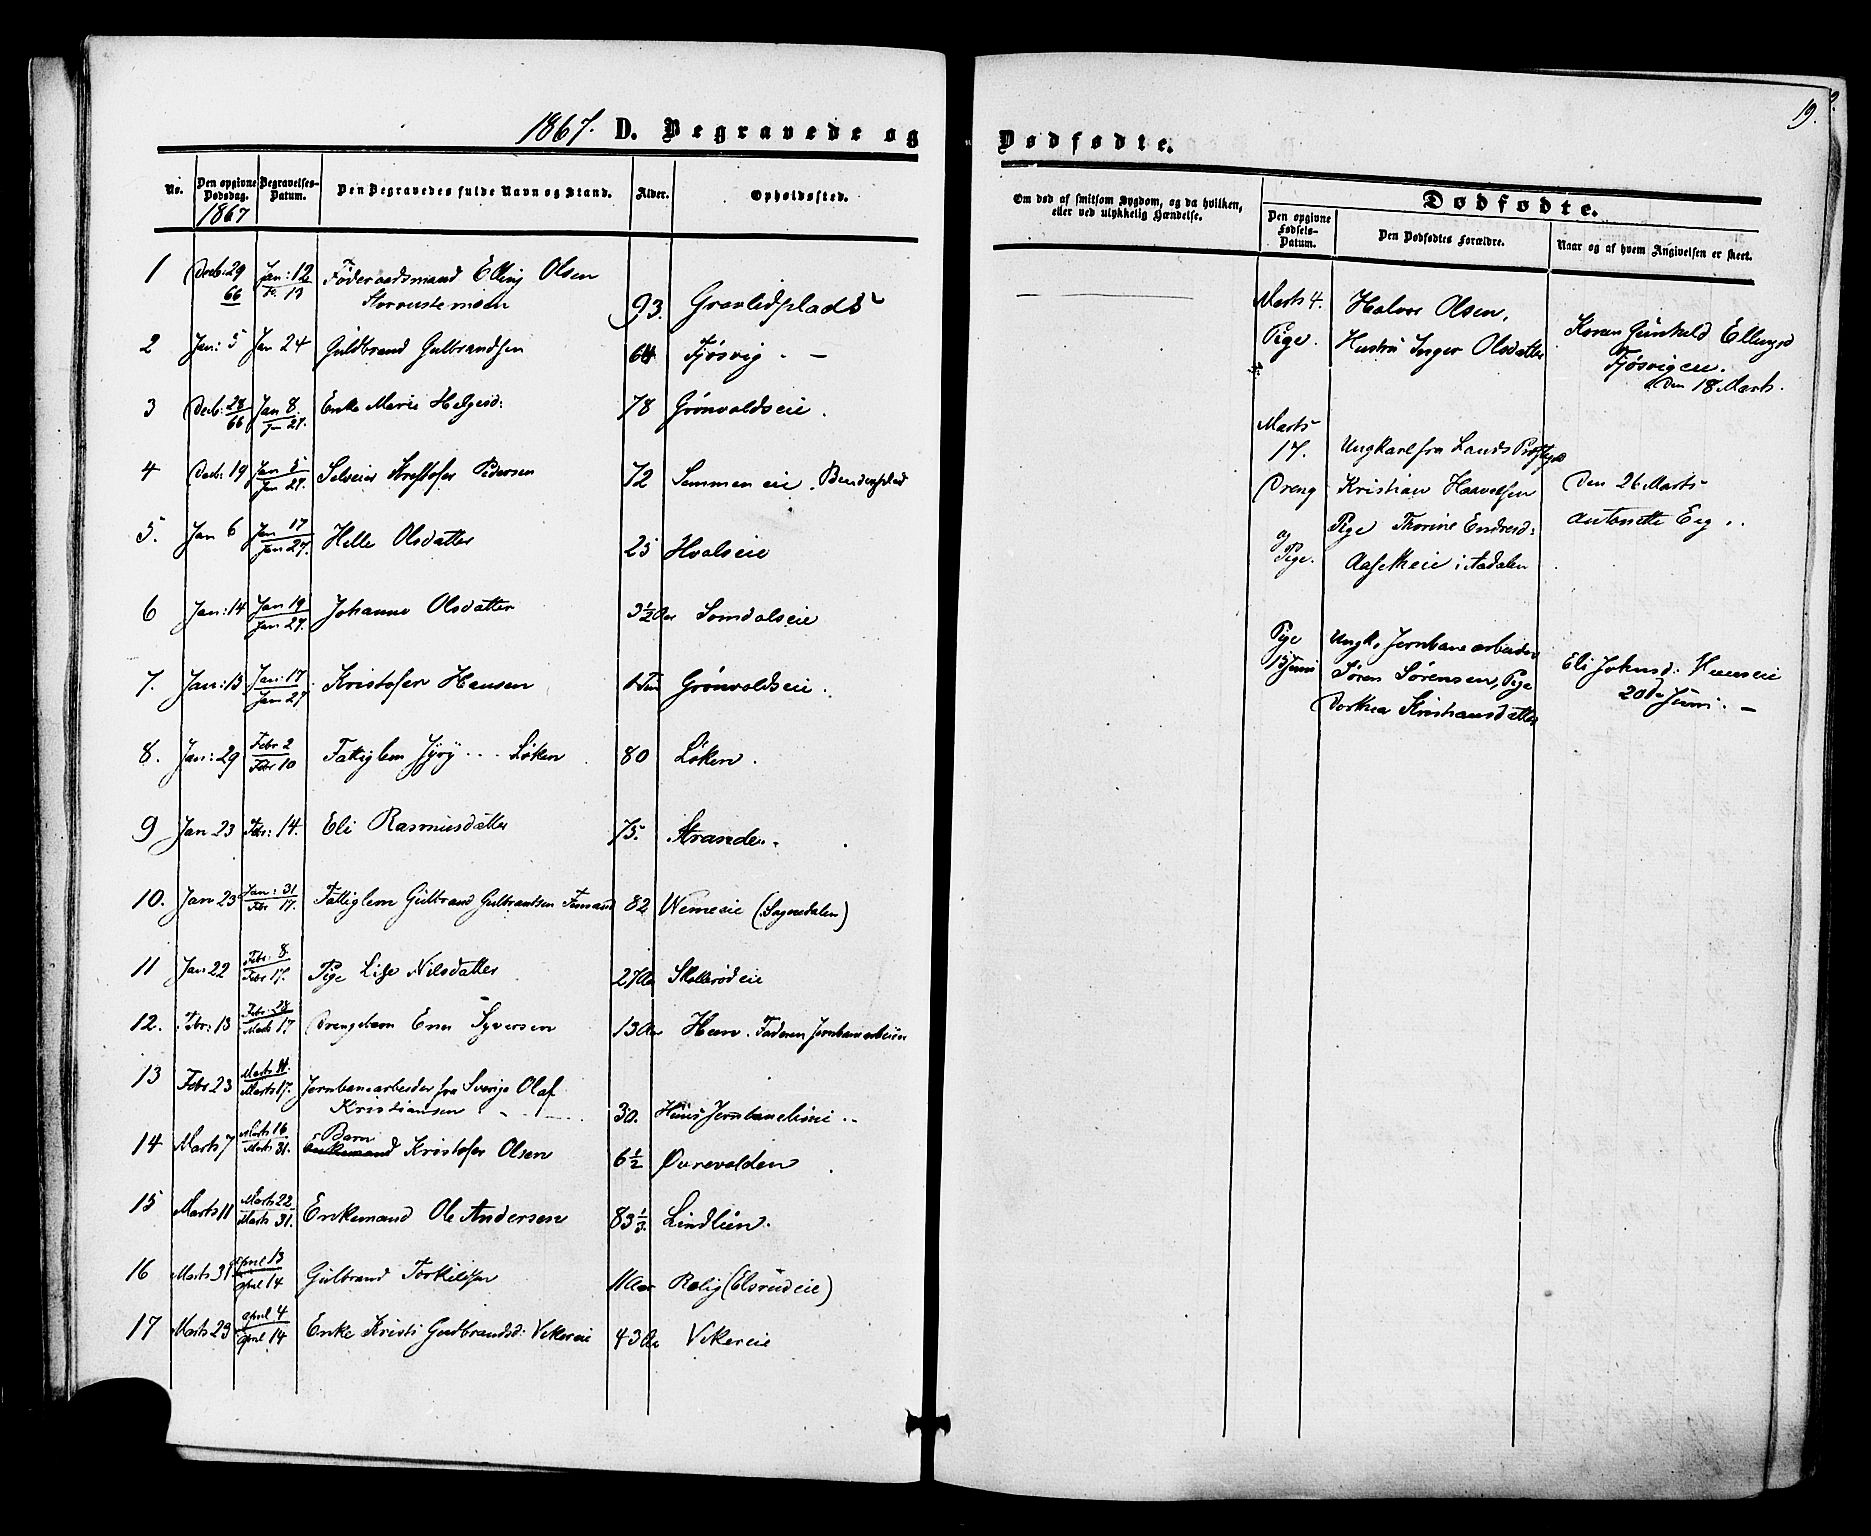 1867. D. Begravede og
No. Den opgivne Dødsdag. 1867 Begravelses-Datum. Den Begravedes fulde Navn og Stand. Alder. Opholdssted.
1 Decb: 29 66 Jan: 12 13 Føderaadsmand Elling Olsen
93. Gravlidplads
2 Jan: 5 Jan 24 Guldbrand Gulbrandsen 64 Tjøsvig - -
3 Decb: 28 66 Jan 8. Jan 27. Enke Marie Helgesd: 78 Grønvoldseie.
4 Decb: 19 Jan 5 Jan 27. Selveier Kristofer Pedersen 72 Semmen eie.
5. Jan 6 Jan 17 Jan 27. Helle Olsdatter 25 Hvalseie
6 Jan: 14 Jan 19 Jan 27. Johanne Olsdatter 3½ Aar Somdalseie
7. Jan: 13 Jan: 17 Jan 27 Kristofer Hansen Grønvoldseie.
8. Jan: 29 Febr 2 Febr 10 Fattiglem Løken 80 Løken.
9 Jan 23 Febr: 14. Eli Rasmusdatter 75. Strande.
10. Jan 23 Jan: 31 Febr 17. Fattiglem Gulbrand Gulbrandsen 82 Wemeeie (Sognedalen)
11 Jan 22 Febr. 8 Febr 17. Pige Lise Nilsdatter 27 Aar Skollerødeie
12. Febr: 13 Febr: 28 Marts 17 Drengebarn Syversen 13 Aar Heen. Faderen Jernbanearbeider
13 Febr 23 Marts 11. Marts 17. Jernbanearbeider fra Sverige Olaf
Kristiansen - - 30. Jernbanelinie -
14 Marts 7 Marts 16 Marts 31. Barn Enkemand Kristofer Olsen 6½ Øvrevolden.
15 Marts 11 Marts 22. Marts 31. Enkemand Ole Andersen 83⅓. Lindlien.
16 Marts 31 April 13 April 14 Gulbrand Torkildsen 11 Aar Rolig (Elsrudeie)
17 Marts 23 april 4 april 14 Enke Kristi Guldbrandsd: Vekereie 43 Aar Vekereie
19.
Dødfødte.
Om død af smitsom Sygdom, og da hvilken, eller ved ulykkelig Hændelse.
Dødfødte.
Den opgivne Fødsels-Datum. Den Dødfødtes Forældre. Naar og af hvem Angivelsen er skeet.
Marts 4. Halvor Olsen,
Pige. Hustru Inger Olsdatter
Karen Gunhild Ellingsd
Tjøsvigeie.
Den 18 Marts.
Marts
17. Ungkarl fra Lands
Dreng Kristian Haavelsen Den 26 Marts
og Pige Thorine Endresd: Antonette Eeg.
Pige. i Aadalen
Pige Ungk. Jernbanearbeider
13 Juni Søren Sørensen, Pige Eli Johnsd:
Dorthea Kristiansdatter 20de Juni. -